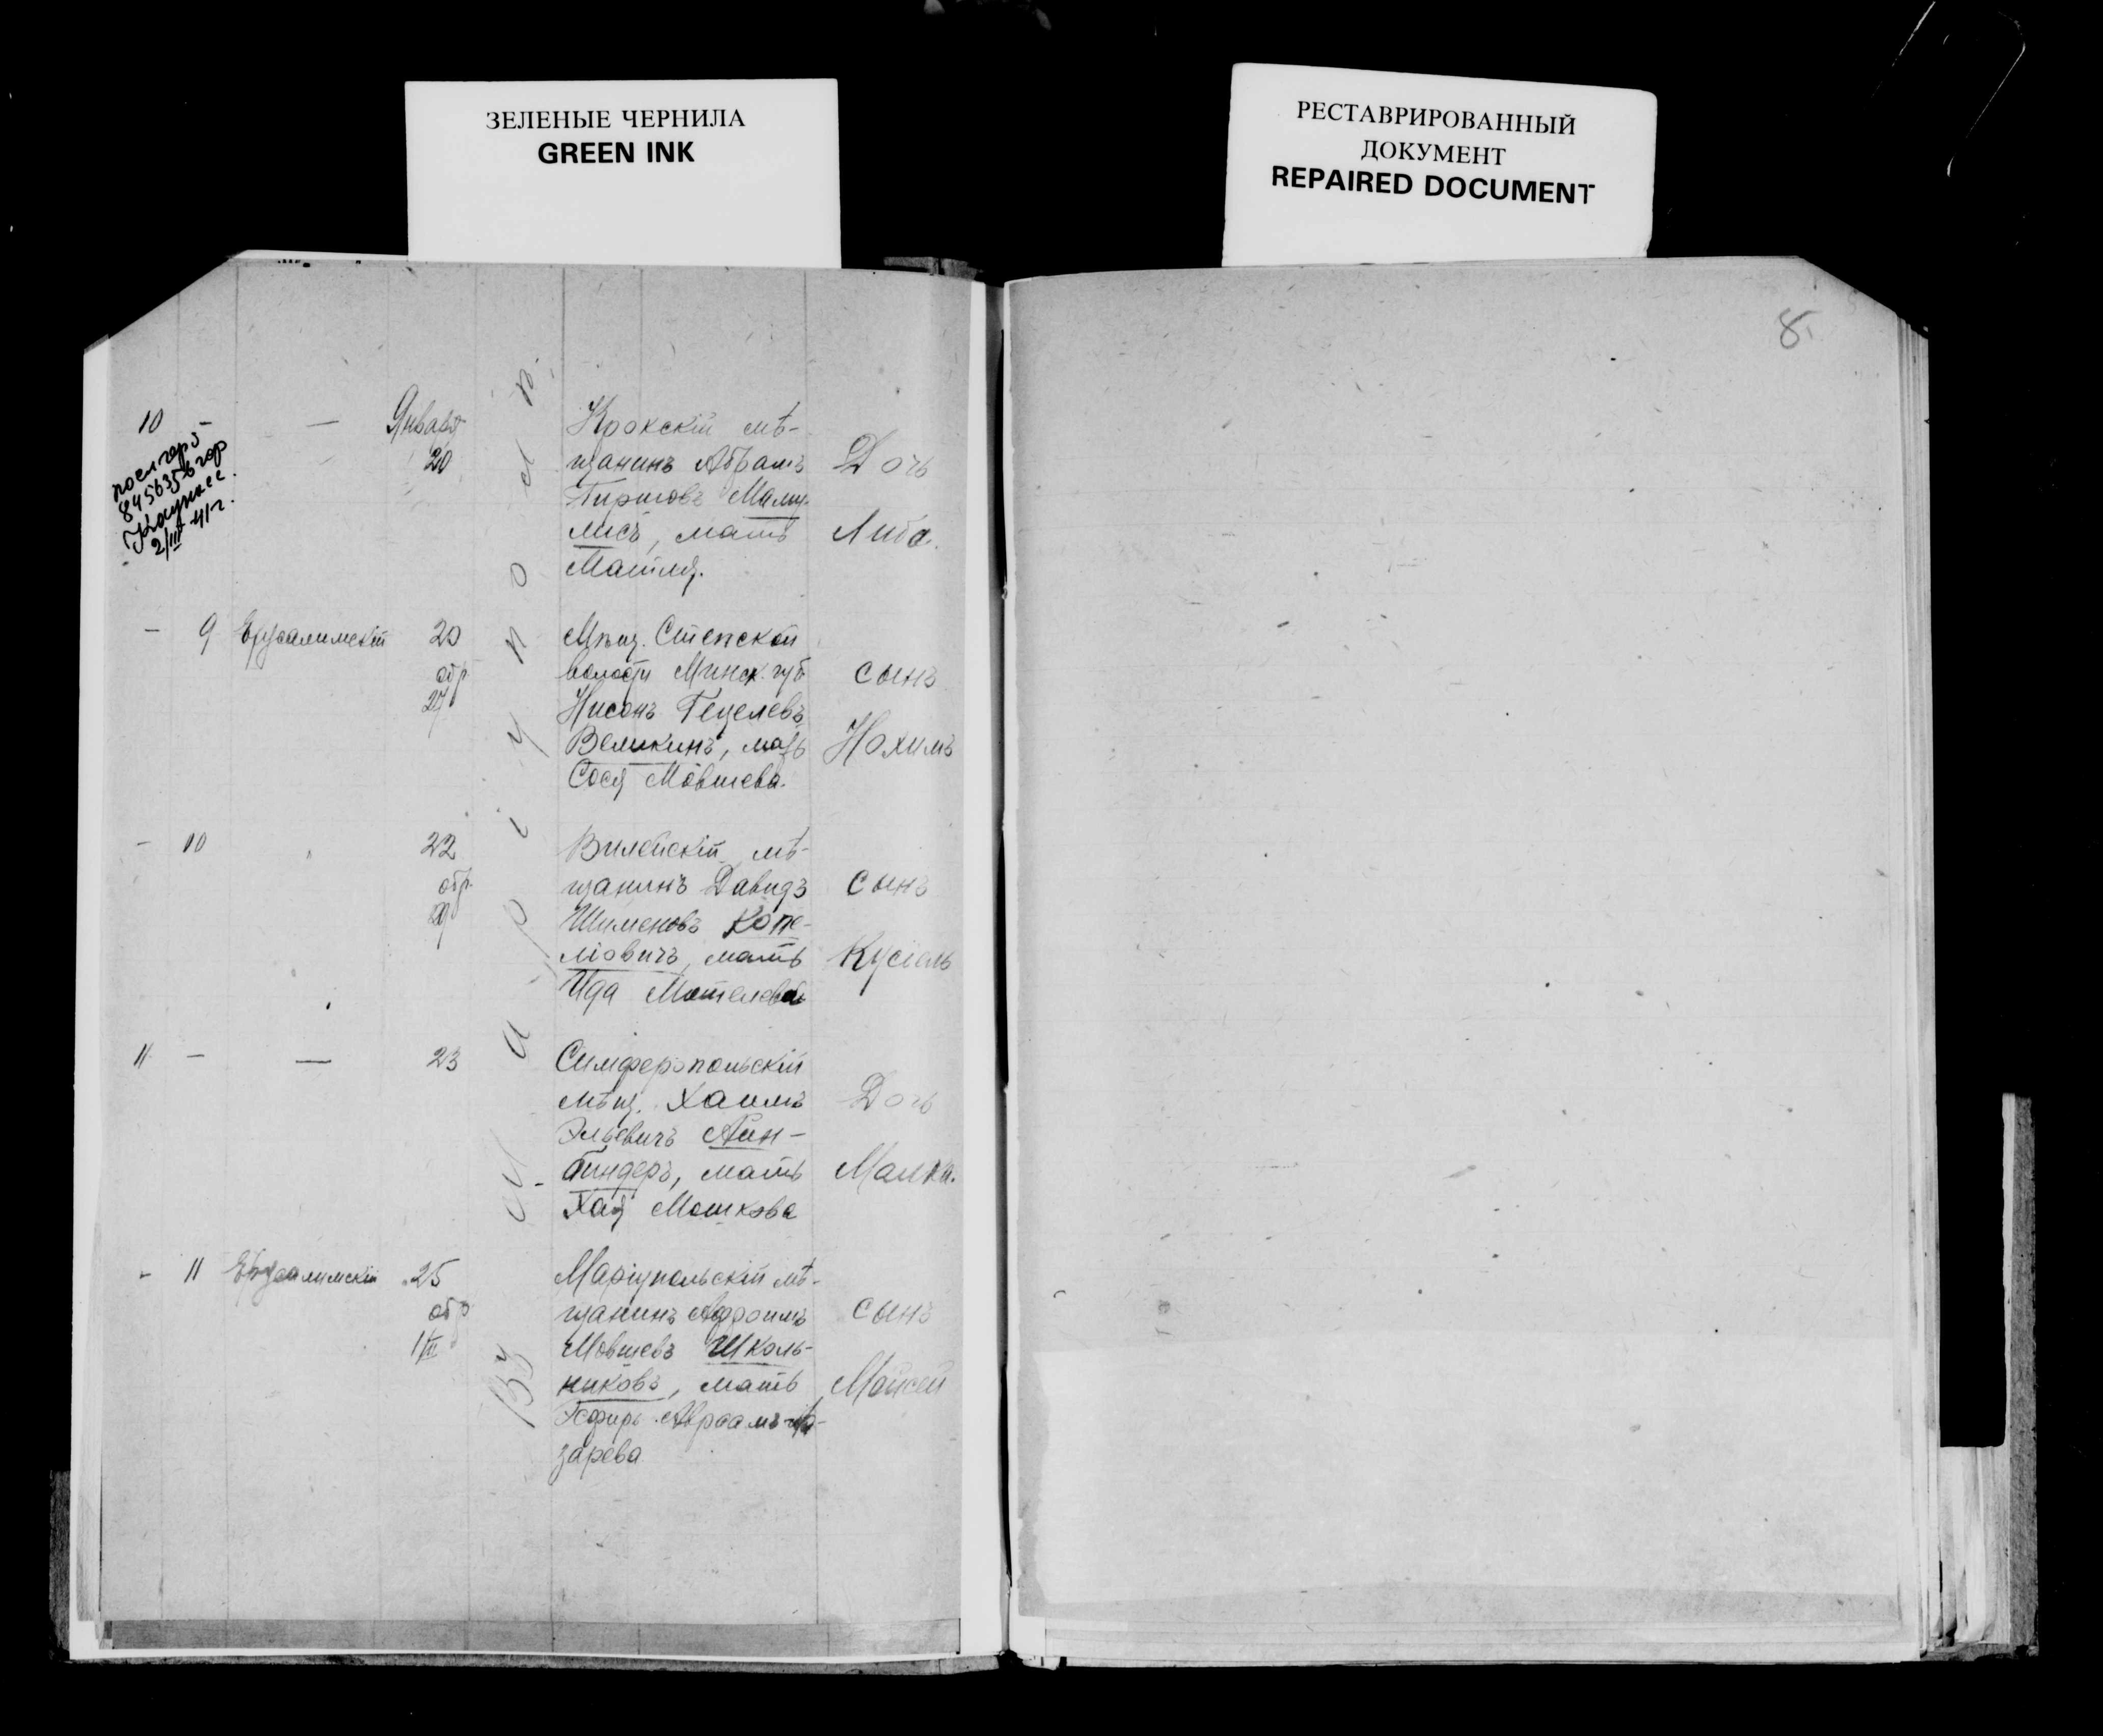 ЗЕЛЕНЫЕ ЧЕРНИЛА
GREEN INK
РЕСТАВРИРОВАННЫЙ
ДОКУМЕНТ
REPAIRED DOCUMENT
8
10 — Января
20
845635
2/III 41 г.
Крокскій мѣ-
щанинъ Абрамъ
Гиршовъ
мать
Дочь
Въ г. Маріуполѣ
— 9 20
обр.
27
Мѣщ. Степской
волости Минск. губ
Нисонъ Гецелевъ
Великинъ, мать
Сося Мовшева.
сынъ
Нохимъ
— 10 " 22
обр.
29
Вилейскій мѣ-
щанинъ Давидъ
Шименовъ Копе-
ліовичъ, мать
Ида Мотелева
сынъ
Кусіель
11 — — 23
Симферопольскій
мѣщ. Хаимъ
Эльевичъ Айн-
биндеръ, мать
Хая Мошкова
Дочь
Малка.
- 11 25
обр
1/II
Маріупольскій мѣ-
щанинъ Афроимъ
Мовшевъ Школь-
никовъ, мать
Эсфирь Авраамъ-Ла-
зарева
сынъ
Мойсей